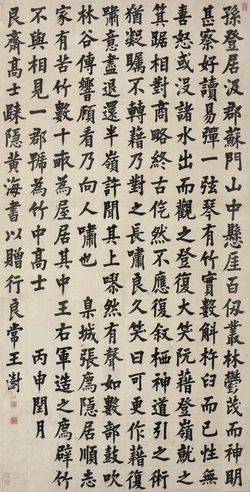 孫登居汲郡蘇門山中懸崖百仞叢林鬱茂而神明
甚察好讀易彈一弦琴有竹實數斛杵臼而已性無
喜怒或沒諸水出而觀之登復大笑阮藉登嶺就之
箕踞相對商略終古仡然不應復敘栖神道引之術
猶凝矚不轉藉乃對之長嘯良久笑曰可更作藉復
嘯意盡退還半嶺許聞其上㗲然有聲如數部鼓吹
林谷傳響顧看乃向人嘯也 臬城張廌隱居順志
家有苦竹數十畝為屋居其中王右軍造之廌避竹
不與相見一郡號為竹中高士 丙申閏月
艮齋高士踈隱黃海書以贈行良常王澍